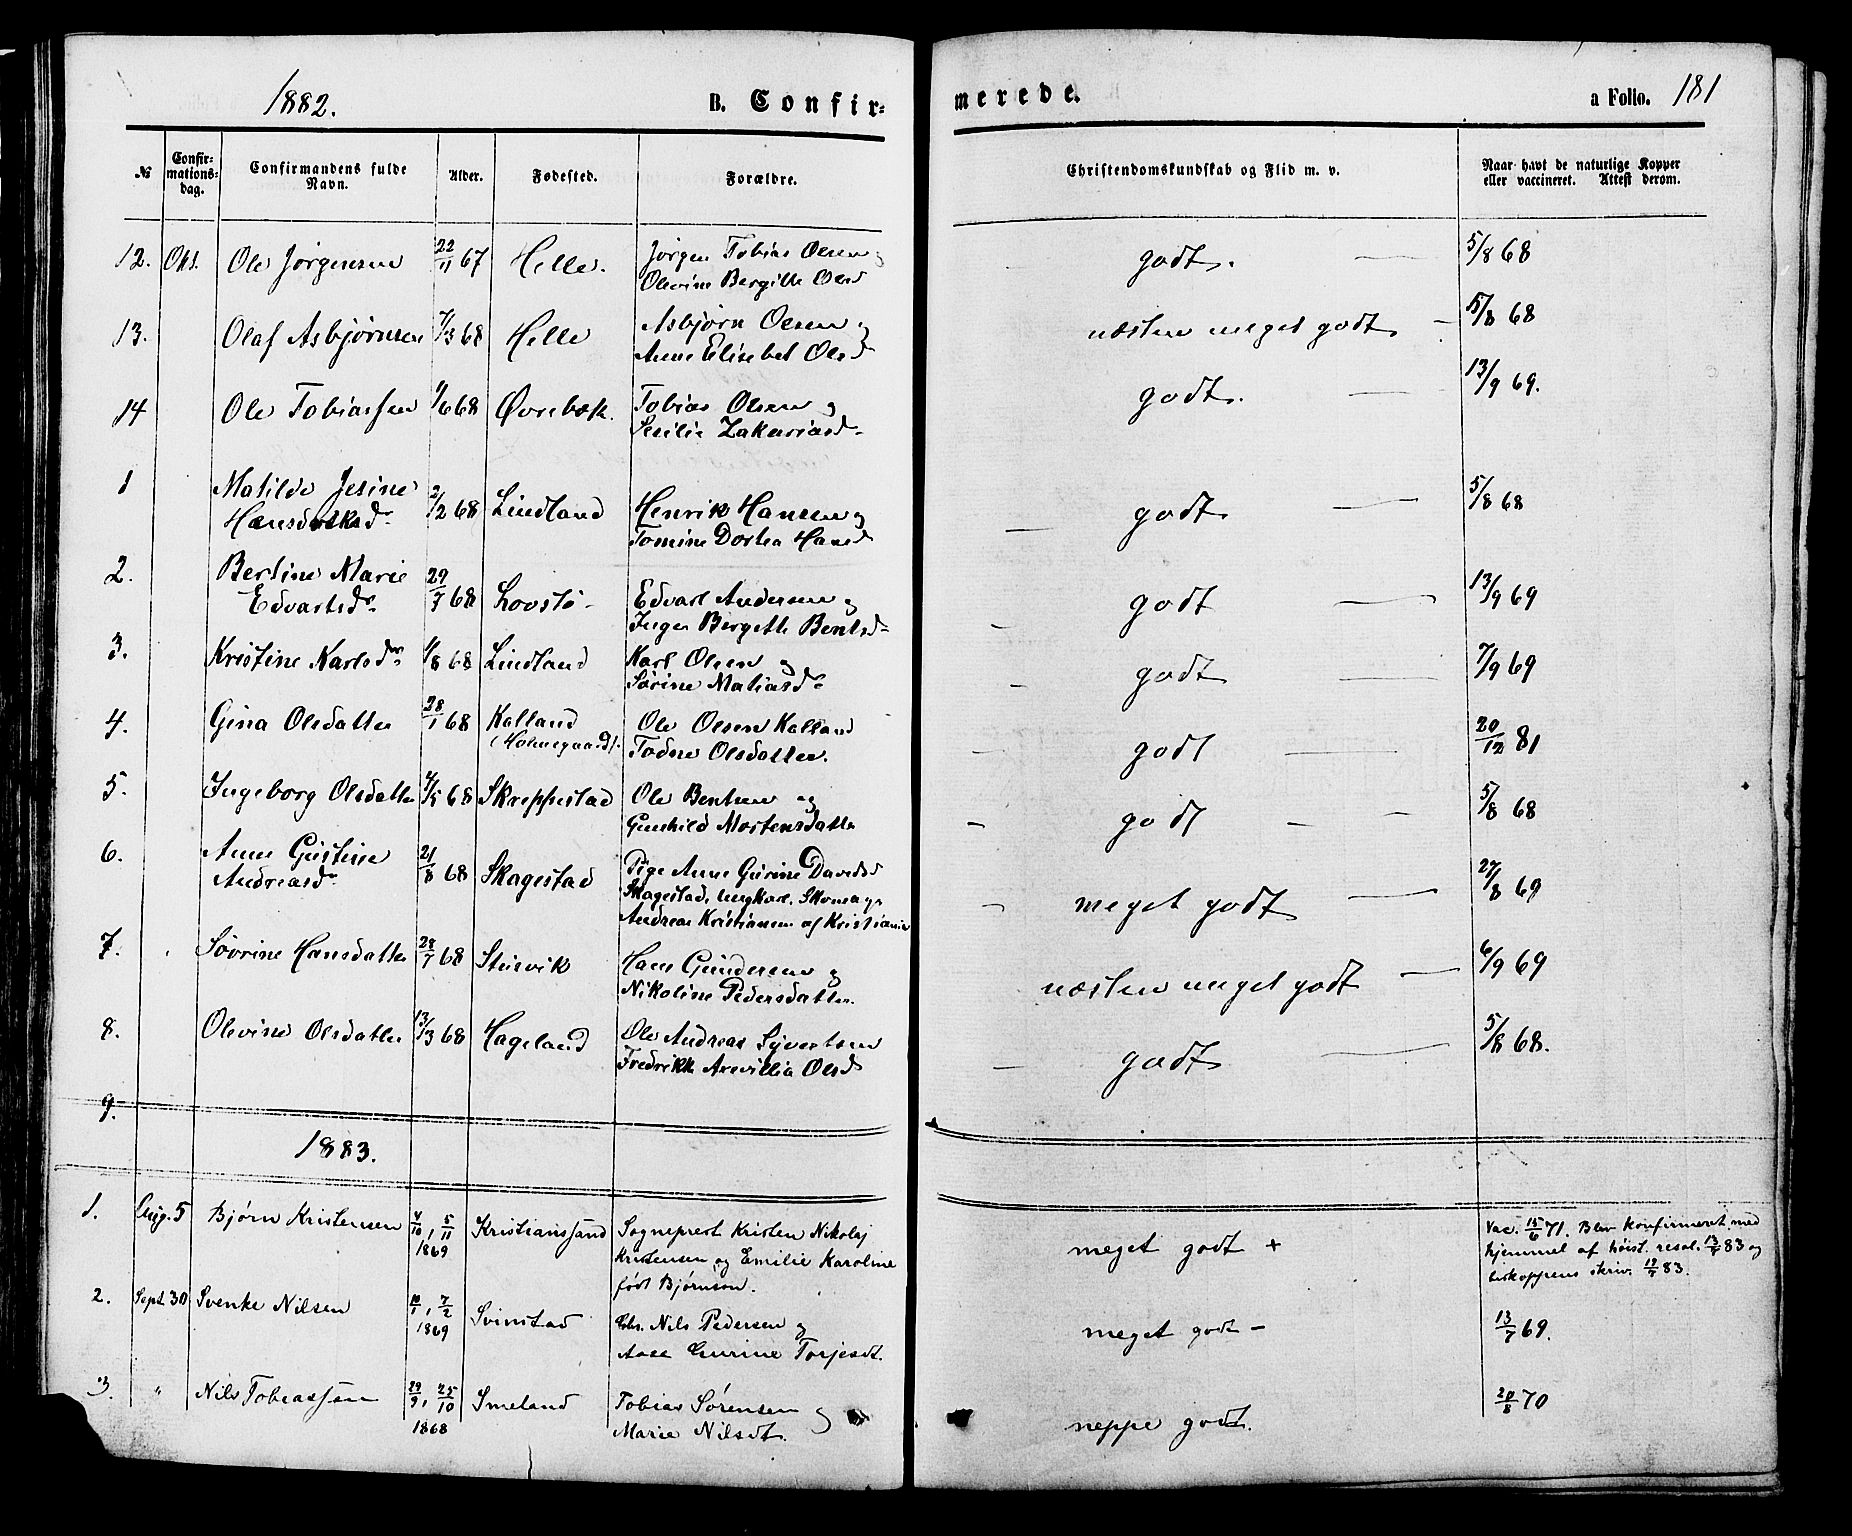 1882. B. Confir-merede. a Folio. 181
№ Confir-mations-dag. Confirmandens fulde Navn. Alder. Fødested. Forældre. Christendomskundskab og Flid m. v. Naar havt de naturlige Kopper eller vaccineret. Attest derom.
12. Okt. Ole Jørgensen 22/11 67 Helle. Jørgen Tobias Olsen og godt. — 5/8 68
Olevine Bergitte Olsd
13. Olaf Asbjørnsen 7/3 68 Helle Asbjørn Olsen og næsten meget godt — 5/8 68
Anne Elisebet Olsd
14 Ole Tobiassen 1/6 68 Øvrebøk. Tobias Olsen og godt. — 13/9 69.
Secilie Zakariasd
1 Matilde Jesine 2/2 68 Lindland Henrik Hanssen og — godt — 5/8 68
Tomine Dortea Hansd
2. Bertine Marie 29/7 68 Lovstø Edvart Andersen og — godt — 13/9 69
Edvartsdr Inger Bergette Bentsd
3. Kristine Karlsdr 1/8 68 Lindland Karl Olsen og — godt — 7/9 69
Sørine Matiasdr
4. Gina Olsdatter 28/1 68 Kalland Ole Olsen Kalland — godt — 20/12 81
(Holmegaard). Todne Olsdatter.
5. Ingeborg Olsdatter 4/5 68 Skreppestad Ole Bentsen og — godt — 5/8 68
Gunhild Mortensdatter
6. Anne Gustine 21/8 68 Skagestad Pige Anne Gurine Davidsd — meget godt — 27/8 69
Andreasdr Skagestad, ungkarl. Skomagr
Andreas Kristiansen af Kristiania
7. Søvrine Hansdatter 28/7 68 Stusvik Hans Gundersen og næsten meget godt — 6/9 69
Nikoline Pedersdatter.
8. Olevine Olsdatter 13/3 68 Hageland Ole Andreas Syvertsen — godt — 5/8 68.
Fredrikke Arevillia Olsd
9.
1883.
1. Aug. 5 Bjørn Kristensen 4/10, 5/11 1869 Kristianssand Sogneprest Kristen Nikolaj meget godt + Vac. 15/6 71. Blev konfirmeret med
Kristensen og Emilie Karoline hjemmel af høist. resol. 13/7 83 og
født Bjørnson. biskoppens skriv. 19/7 83.
2. Sept 30 Svenke Nilsen 10/1, 7/2 1869 Svinstad Nils Pedersen og meget godt — 13/7 69.
Aase Gurine Torjesdt.
3. " Nils Tobiassen 29/9, 25/10 1868 Smeland Tobias Sørensen og neppe godt. 20/8 70
Marie Nilsdt.